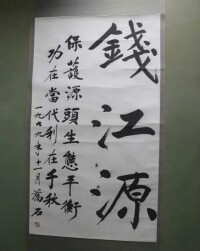 錢江源
保護源頭生態平衡
功在當代利在千秋
一九九九年十一月 萬石